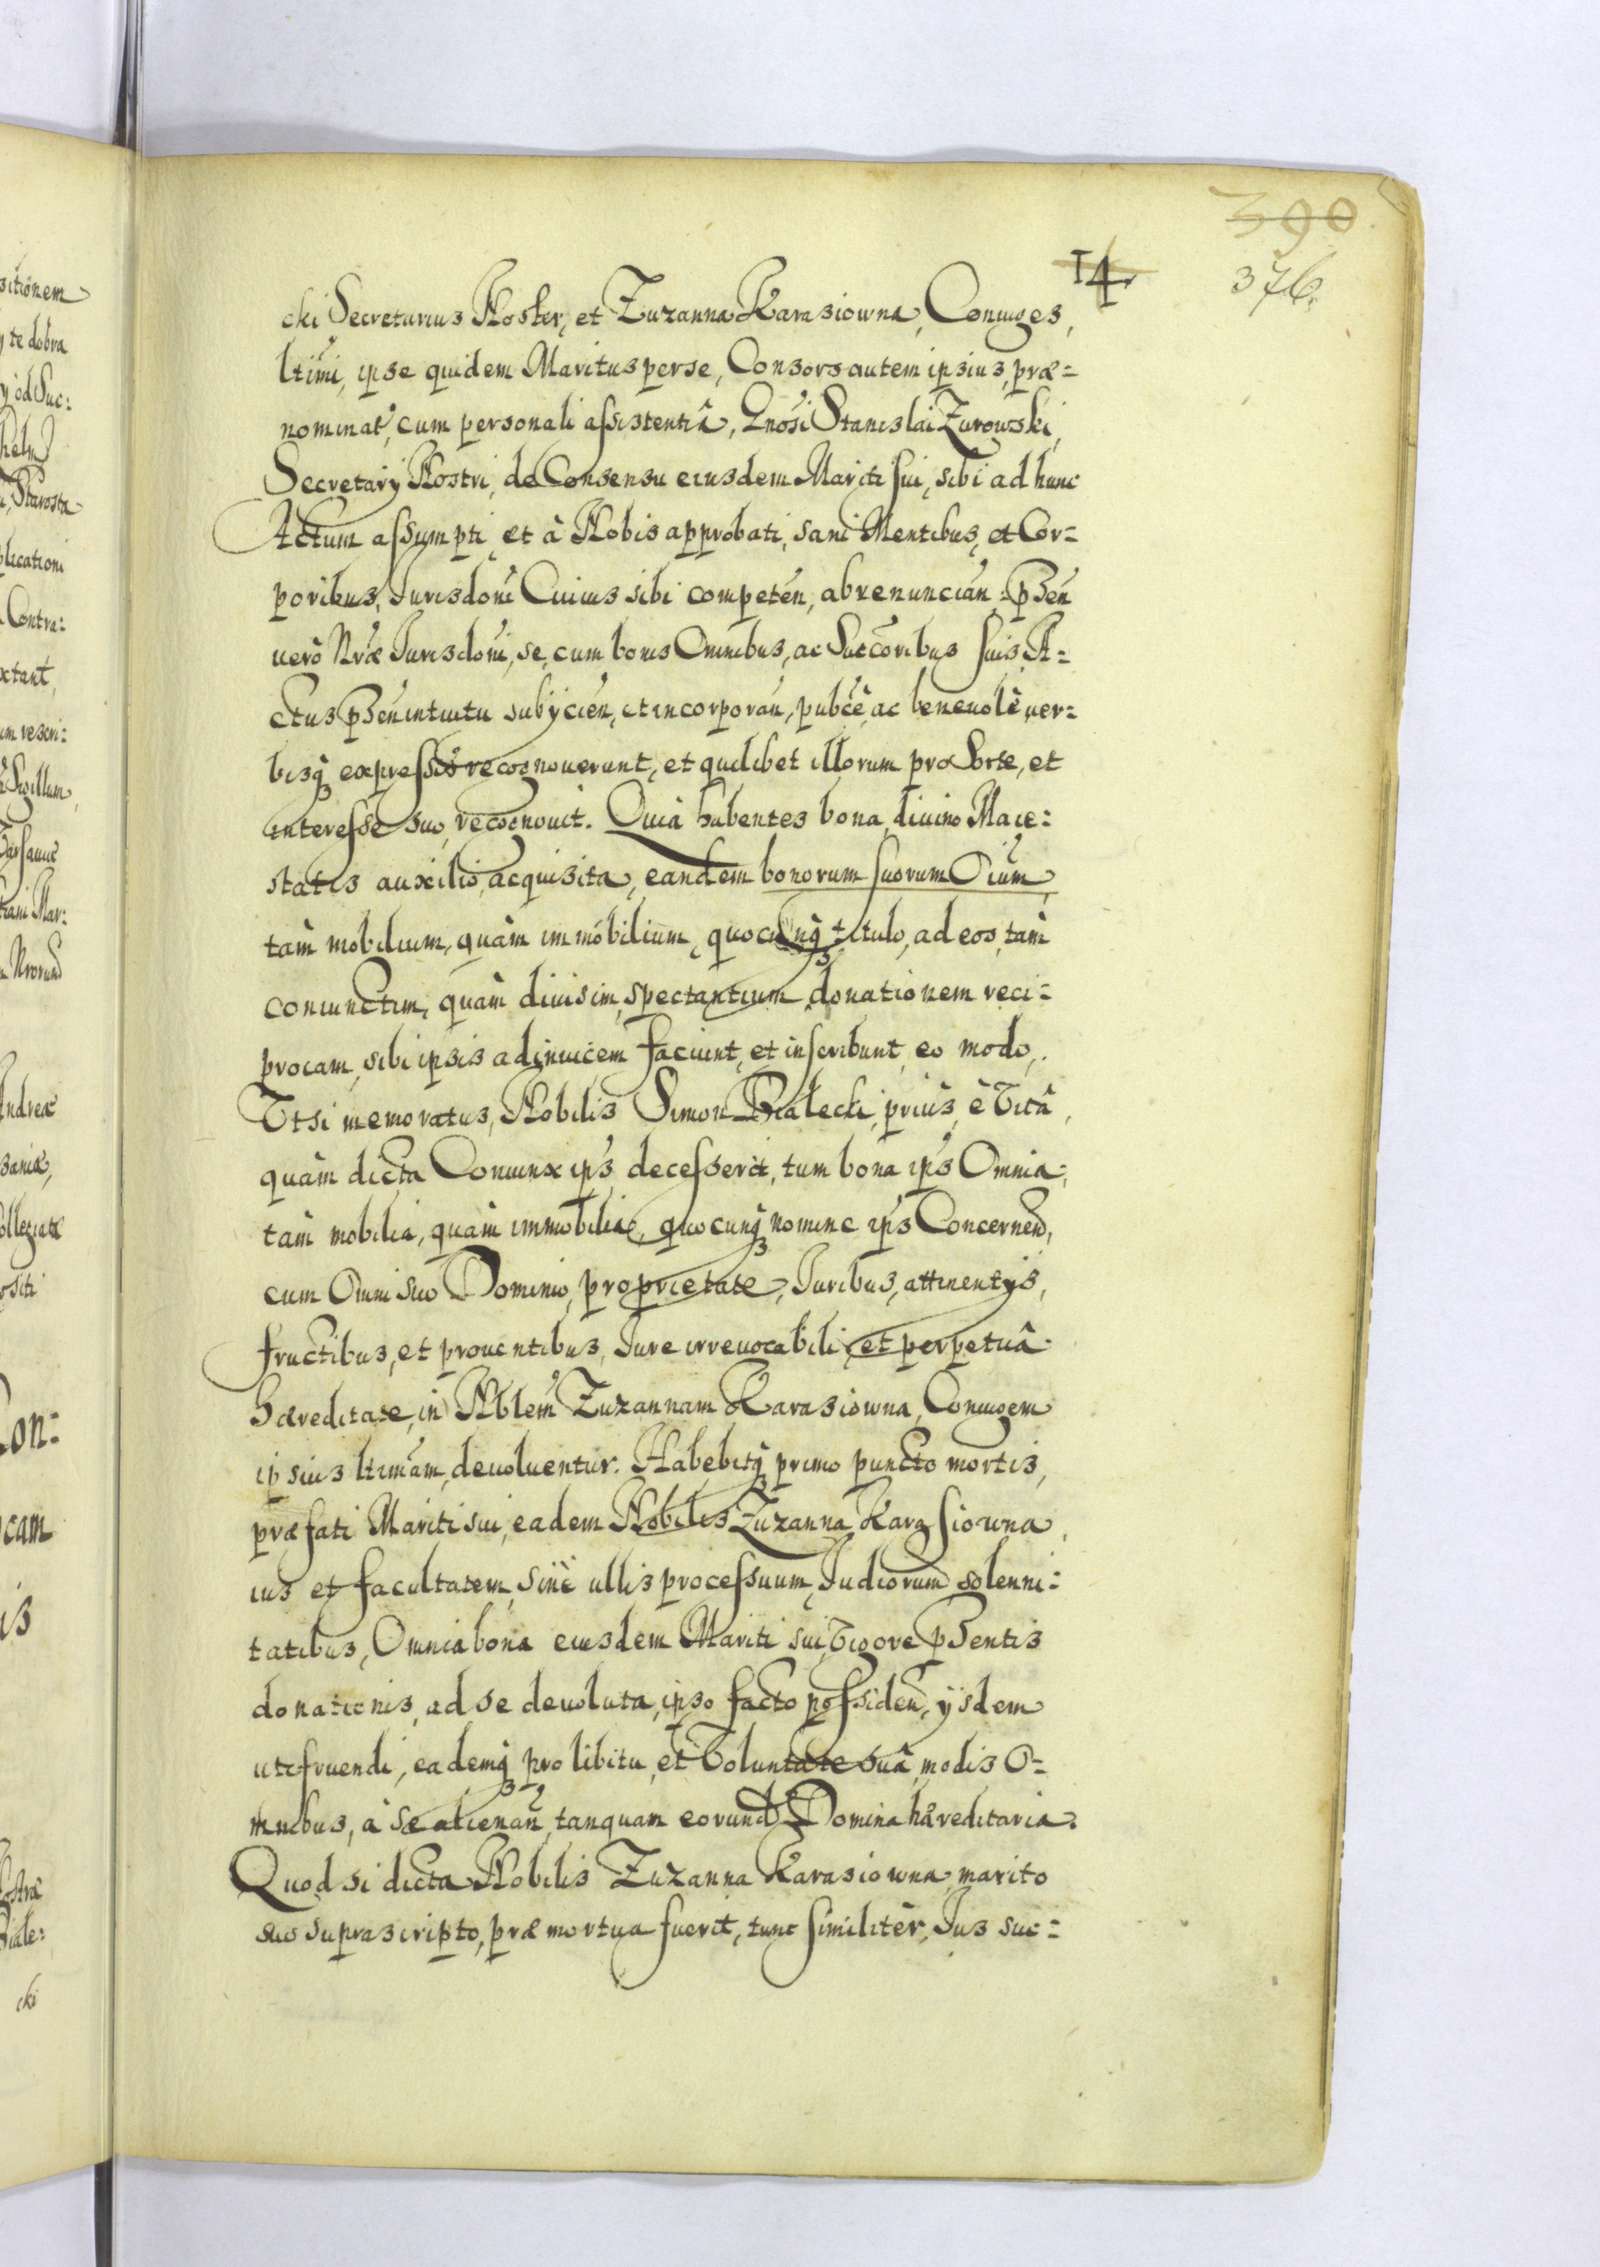 390
14
376.
cki Secretarius Noster, et Zuzanna Karasiowna, Coniuges,
ltimi, ipse quidem Maritus per se, Consors autem ipsius præ=
nominat, cum personali assistentiâ, Gnosi Stanislai Zurowski,
Secretarij Nostri, de Consensu eiusdem Mariti sui, sibi ad hunc
Actum assumpti, et à Nobis approbati, sani Mentibus, et Cor=
poribus, Jurisdoni Cuius sibi competen, abrenuncian. pzen
uerò Nræ Jurisdoni, se, cum bonis Omnibus, ac Succoribus suis, A=
ctus pzen intuitu subijcien, et incorporan, pubcè, ac beneuolè, uer=
bisq expressis recognouerunt, et quilibet illorum pro Sorte, et
interesse suo, recognouit. Quia habentes bona, diuino Maie=
statis auxilio, acquisita, eandem bonorum suorum Oium,
tàm mobilium, quàm immobilium, quocunq titulo, ad eos, tàm
coniunctim, quàm diuisim, spectantium, donationem reci=
procam, sibi ipsis adinuicem faciunt, et inscribunt, eo modo,
Vt si memoratus, Nobilis Simon Bialecki, priùs, è Vitâ,
quàm dicta Coniunx ips decesserit, tum bona ips Omnia,
tàm mobilia, quàm immobilia, quocunq nomine ips Concernen,
cum Omni suo Dominio, proprietate, Juribus, attinentijs,
fructibus, et prouentibus, Jure irreuocabili, et perpetuâ
Hæreditate, in Nblem Zuzannam Karasiowna, Coniugem
ipsius ltimam, deuoluentur. Habebitq primo puncto mortis,
præfati Mariti sui, eadem Nobilis Zuzanna Karasiowna,
ius et facultatem, sinè ullis processuum, Judiorum solenni=
tatibus, Omnia bona eiusdem Mariti sui, Vigore pzentis
donationis, ad se deuoluta, ipso facto possiden, ijsdem
utifruendi, eademq pro libitu, et Voluntate suâ, modis O=
mnibus, à se alienan, tanquam eorund Domina hæreditaria.
Quod si dicta Nobilis Zuzanna Karasiowna, marito
suo suprascripto, præmortua fuerit, tunc similitèr, Jus suc=